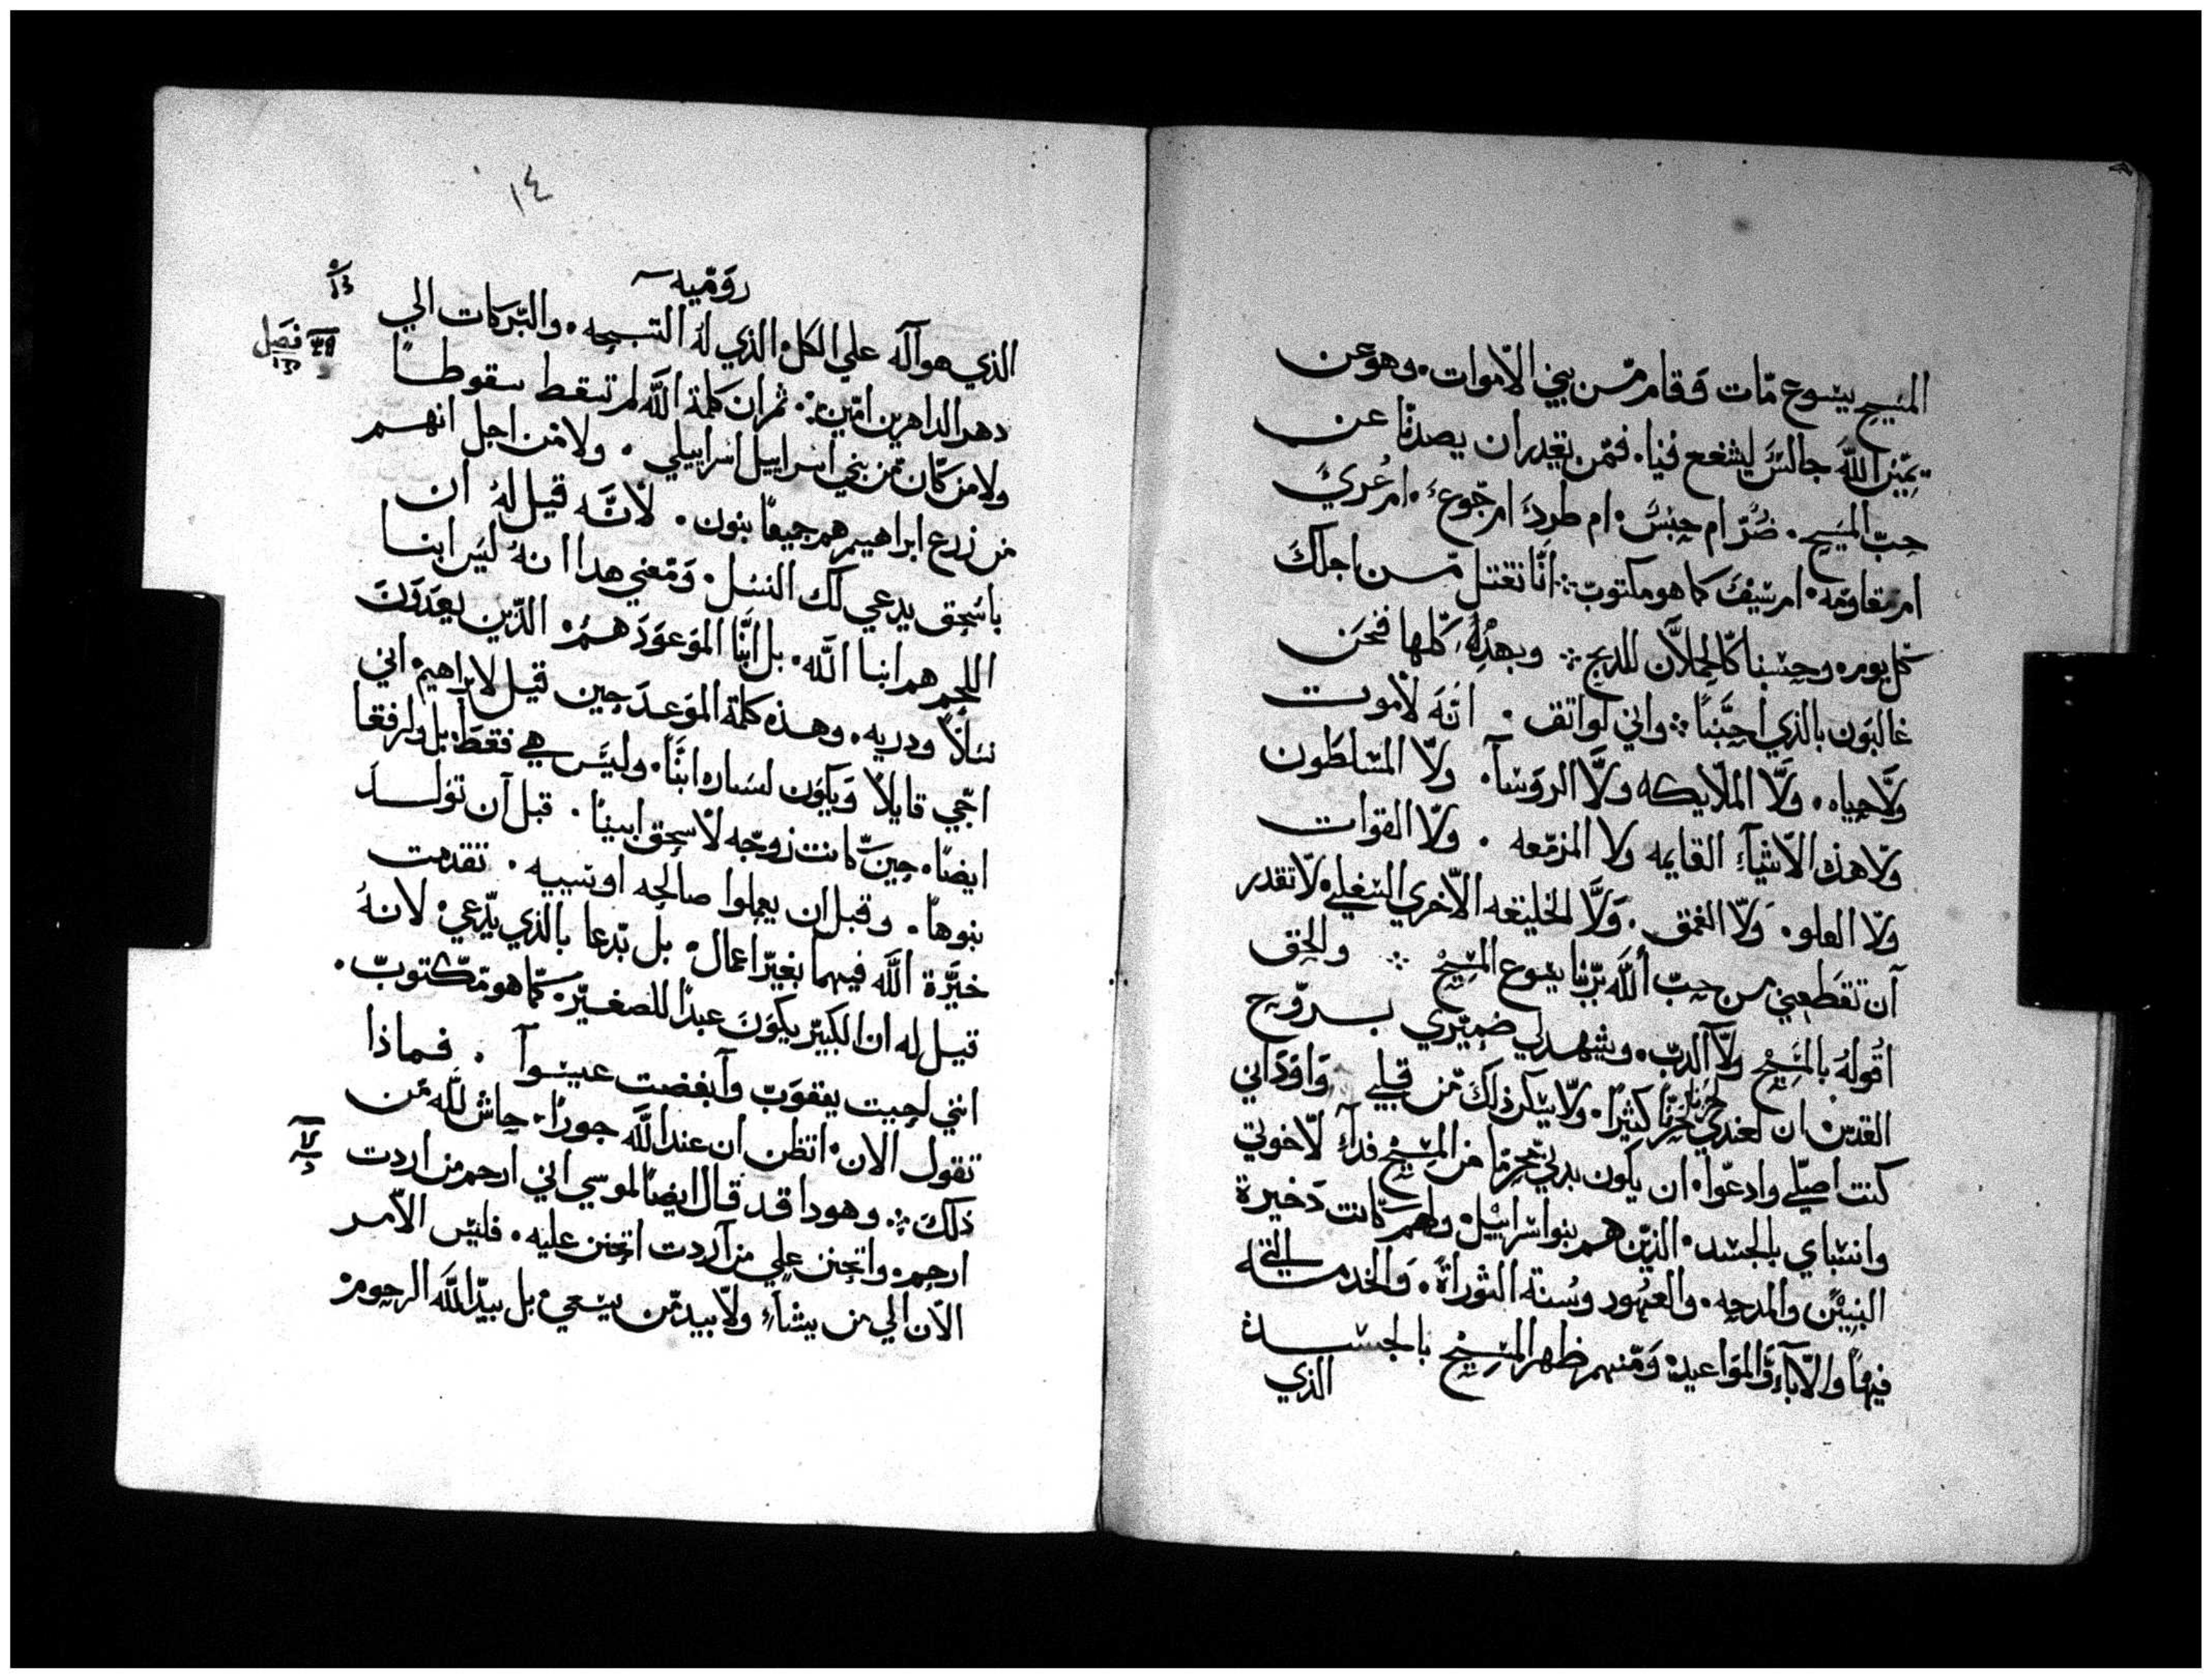 المسيح يسوع مات وقام من بين الاموات. وهو عن
يمين الله جالس ليشفع فينا. فمن يقدر ان يصدنا عن
حب المسيح. ضُرّ ام حبس. ام طرد ام جوع. ام عُري
ام مقاومه. ام سيف كما هو مكتوب. انا نقتل من اجلك
كل يوم. وحسبنا كالحملان للدبح. وبهذه كلها فنحن
غالبون بالذي احبنا. واني لواثق. انه لا موت
ولا حياه. ولا الملايكه ولا الروسآ. ولا المسلطون
ولا هذه الاشيآء القايمه ولا المزمعه. ولا القوات
ولا العلو. ولا العمق. ولا الخليقه الاخري السفلي. لا تقدر
آن تقطعني من حب الله بربنا يسوع المسيح والحق
اقوله بالمسيح ولا آكدب. ويشهد لي ضميري بروح
القدس. ان لعندي حزنًا كثيرًا. ولا يسكن ذلك من قلبي وآودّ اني
كنت اصلي وادعوا. ان يكون بدني محرمًا من المسيح فدآء لاخوتي
وانسباي بالجسد. الذين هم بنوا اسراييل. ولهم كانت دخيرة
البنين والمدحه. والعهود وسنة التوراة. والخدمه التي
فيها والآبآء والمواعيد. ومنهم ظهر المسيح بالجسد
الذي
١٤
روميه
الذي هو آله علي الكل. الذي له التسبحه. والبركات الي
فصل
دهر الداهرين امين. ثم ان كلمة الله لم تسقط سقوطًا
ولا من كان من بني اسراييل اسراييلي. ولا من اجل انهم
من زرع ابراهيم هم جميعًا بنون. لانه قيل له ان
باسحق يدعي لك النسل. ومعني هدا انه ليس ابنا
اللحم هم ابنا الله. بل انما الموعود هم. الدين يعدون
نسلاً ودريه. وهذه كلمة الموعد حين قيل لابراهيم. اني
اجي قابلاً ويكون لساره ابنًا. وليس هي فقط. بل ولرفقا
ايضًا. حين كانت زوجه لاسحق ابينا. قبل آن تولد
بنوها. وقبل ان يعملوا صالحه او سييه. تقدمت
خيرة الله فيهما بغير اعمال. بل بدعا بالذي يدعي. لانه
قيل له ان الكبير يكون عبدًا للصغير. كما هو مكتوب.
انني احببت يعقوب وآبغضت عيسوآ. فماذا
تقول الان. اتظن ان عند الله جورًا. حاش لله من
ذلك. وهودا قد قال ايضًا لموسي اني ارحم من اردت
ارحم. واتحنن علي من آردت اتحنن عليه. فليس الامر
الآن الي من يشآء ولا بيد من يسعي. بل بيد الله الرحوم.